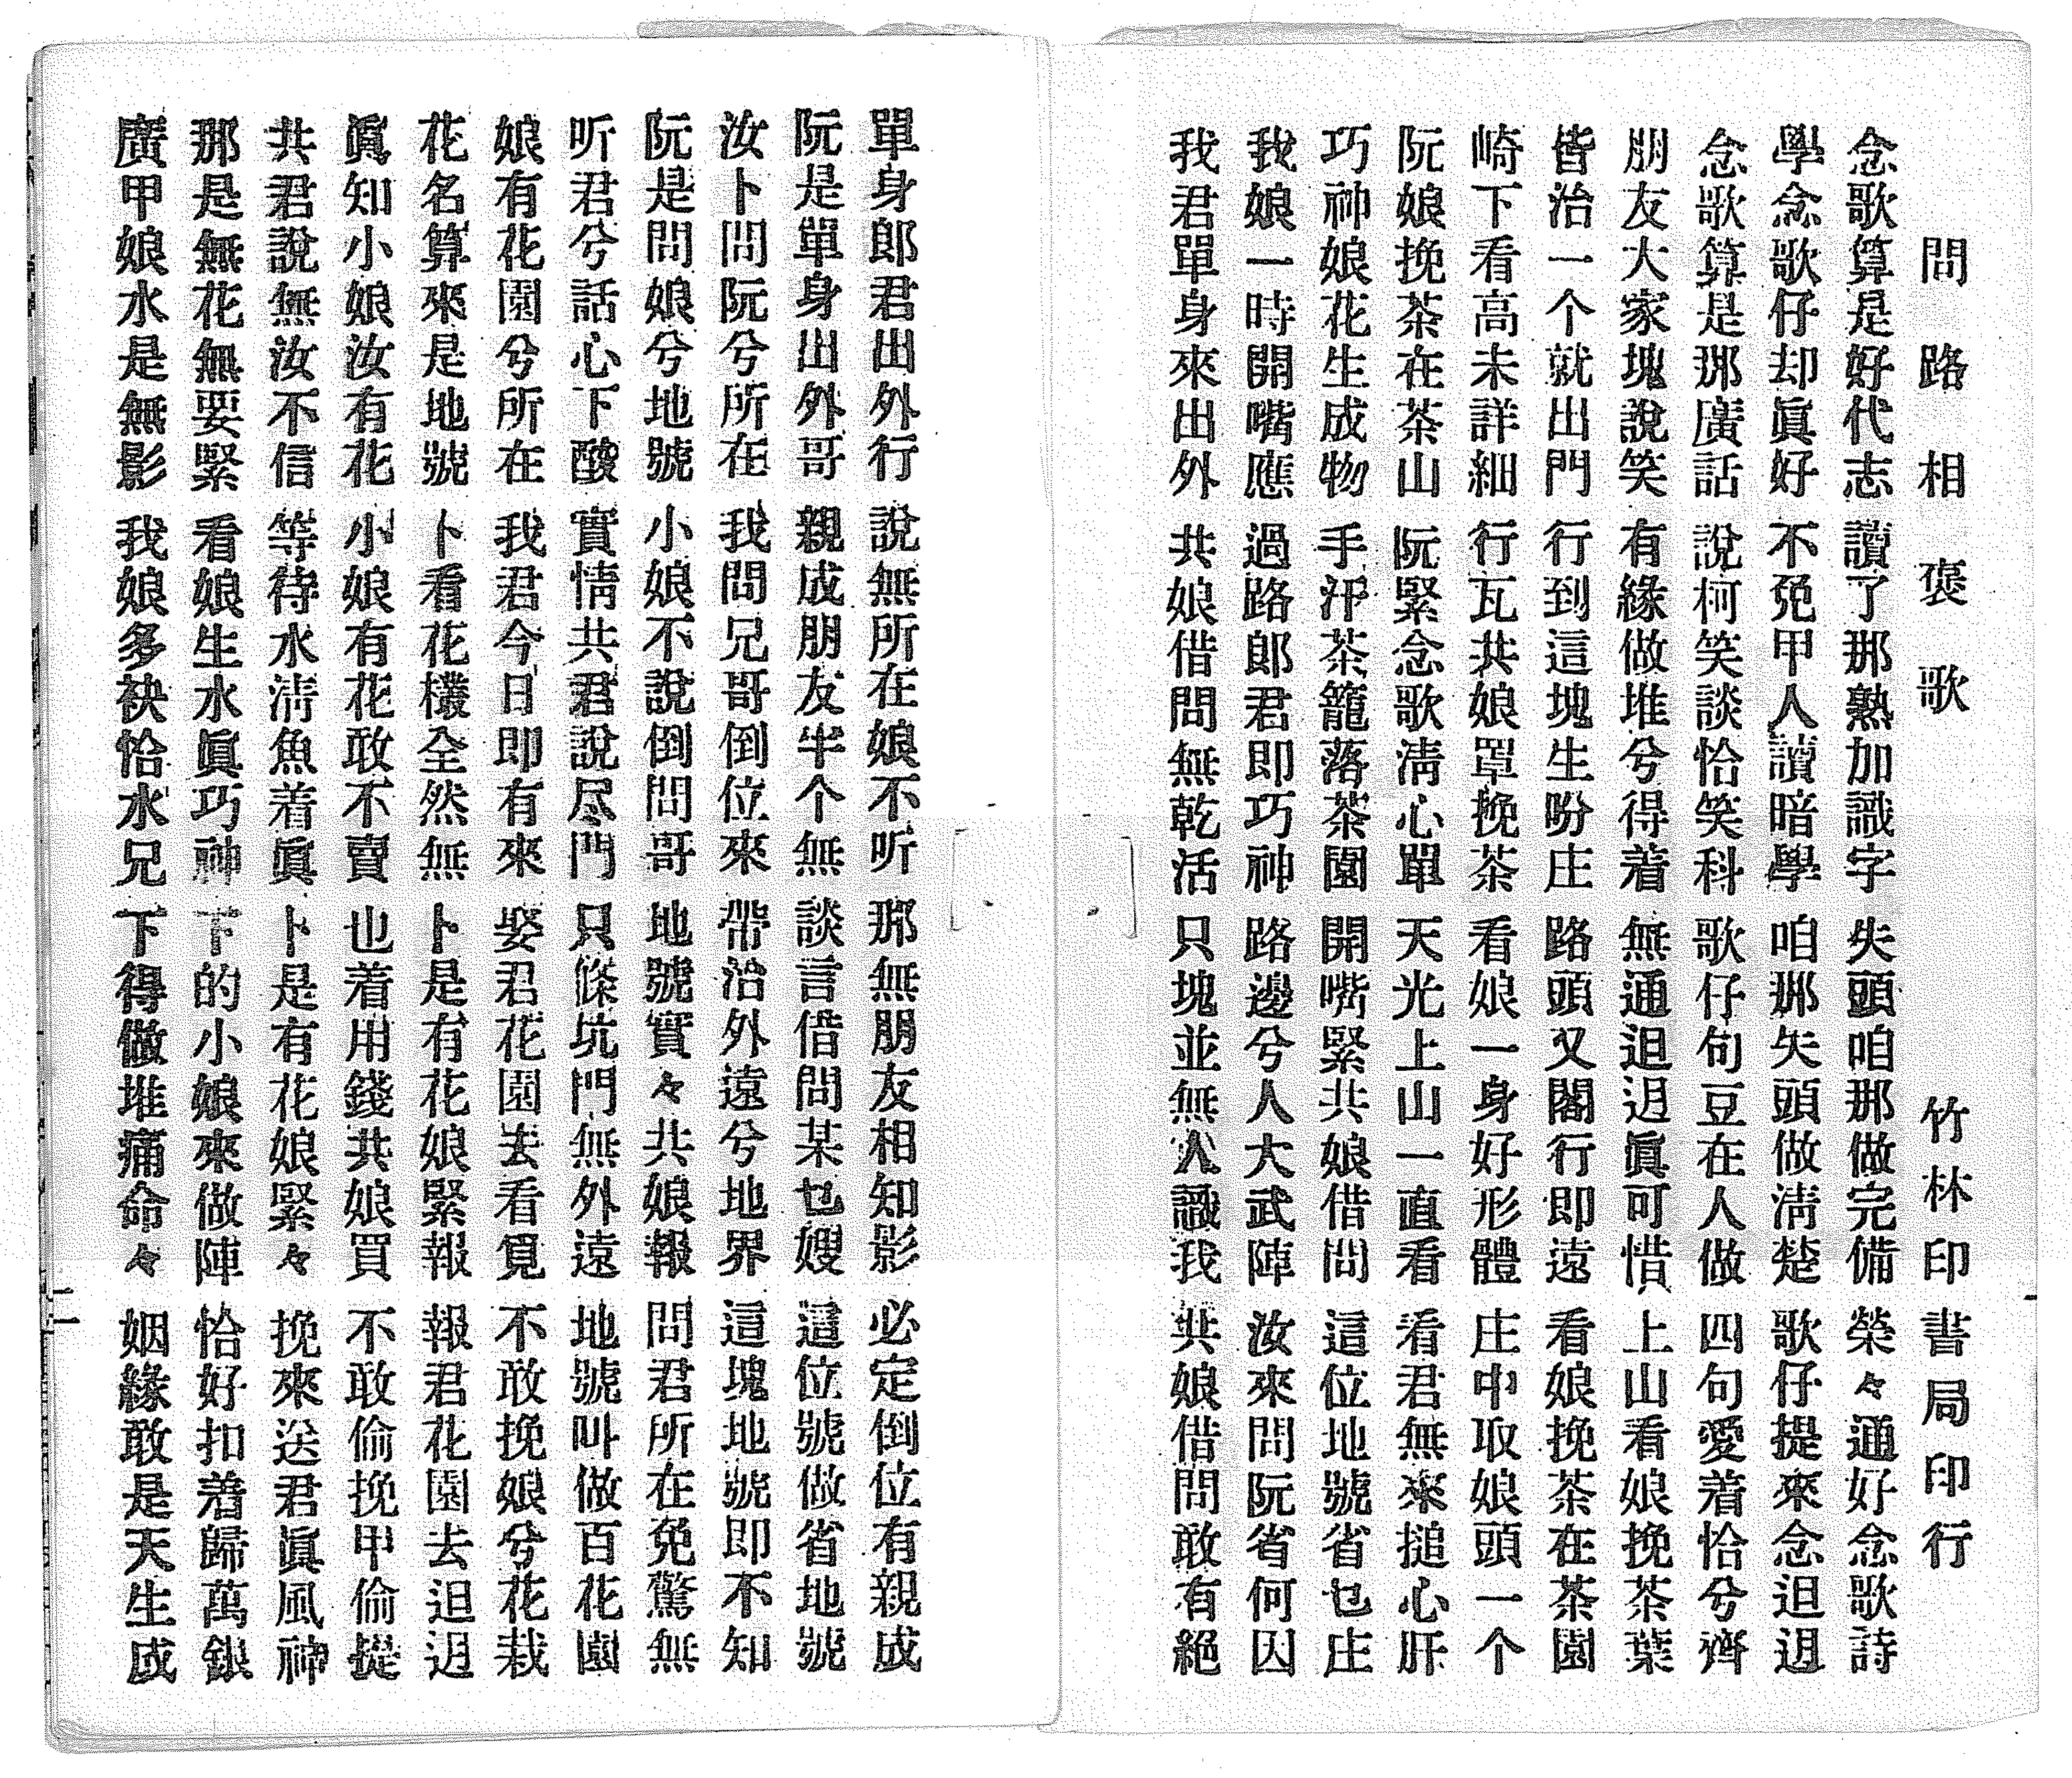 問路相褒歌 竹林印書局印行
念歌算是好代志 讀了那熟加識字 失頭咱那做完備 榮々通好念歌詩
學念歌仔却眞好 不免甲人讀暗學 咱那失頭做淸楚 歌仔提來念𨑨迌
念歌算是那廣話 說柯笑談恰笑科 歌仔句豆在人做 四句愛着恰兮齊
朋友大家塊說笑 有緣做堆兮得着 無通𨑨迌眞可惜 上山看娘挽茶葉
皆治一个就出門 行到這塊生吩庄 路頭又閣行即遠 看娘挽茶在茶園
崎下看高未詳細 行瓦共娘罩挽茶 看娘一身好形體 庄中取娘頭一个
阮娘挽茶在茶山 阮緊念歌淸心單 天光上山一直看 看君無來搥心肝
巧神娘花生成物 手汗茶籠落茶園 開嘴緊共娘借問 這位地號省乜庄
我娘一時開嘴應 過路郎君即巧神 路邊兮人大武陣 汝來問阮省何因
我君單身來出外 共娘借問無乾活 只塊並無人識我 共娘借問敢有絕
單身郎君出外行 說無所在娘不听 那無朋友相知影 必定倒位有親成
阮是單身出外哥 親成朋友半个無 談言借問某乜嫂 這位號做省地號
汝卜問阮兮所在 我問兄哥倒位來 帶治外遠兮地界 這塊地號即不知
阮是問娘兮地號 小娘不說倒問哥 地號實々共娘報 問君所在免驚無
听君兮話心下酸 實情共君說尽門 只條坑門無外遠 地號叫做百花園
娘有花園兮所在 我君今日即有來 娶君花園去看覓 不敢挽娘兮花栽
花名算來是地號 卜看花欉全然無 卜是有花娘緊報 報君花園去𨑨迌
眞知小娘汝有花 小娘有花敢不賣 也着用錢共娘買 不敢偷挽甲偷提
共君說無汝不信 等待水淸魚着眞 卜是有花娘緊々 挽來送君眞風神
那是無花無要緊 看娘生水眞巧神 下的小娘來做陣 恰好扣着歸萬銀
廣甲娘水是無影 我娘多袂恰水兄 下得做堆痛命々 姻緣敢是天生成
二